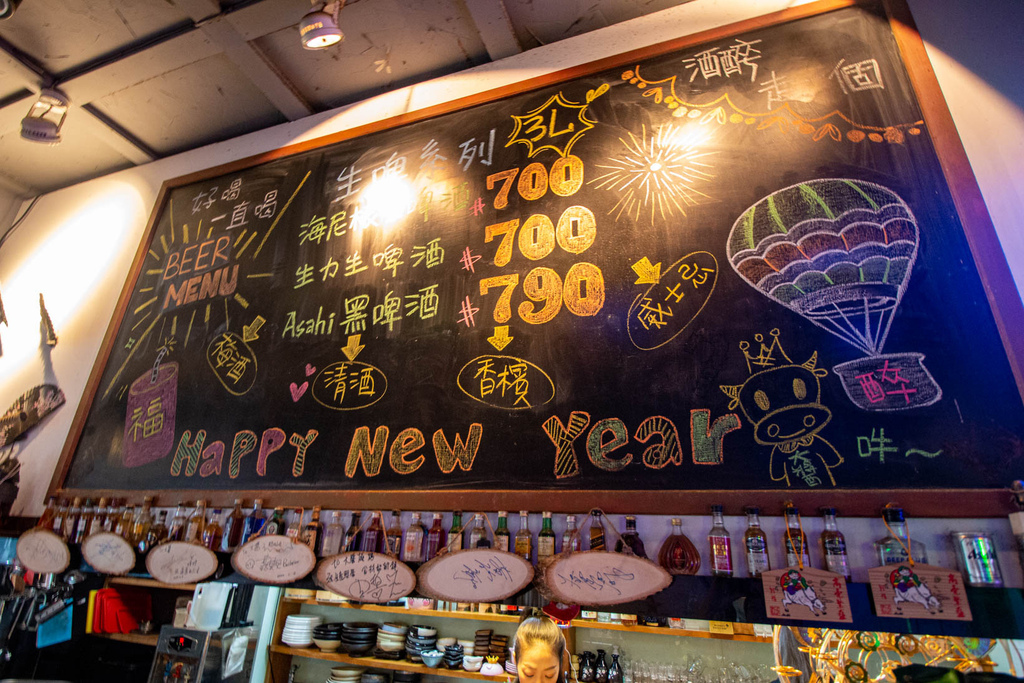 好喝
一直喝
BEER
MENU
福
梅酒
生啤系列
3L
海尼根 啤酒 #700
生力生啤酒 #700
Asahi黑啤酒 #790
清酒
香檳
威士忌
酒醉
走
個
醉
Happy New Year
哞~